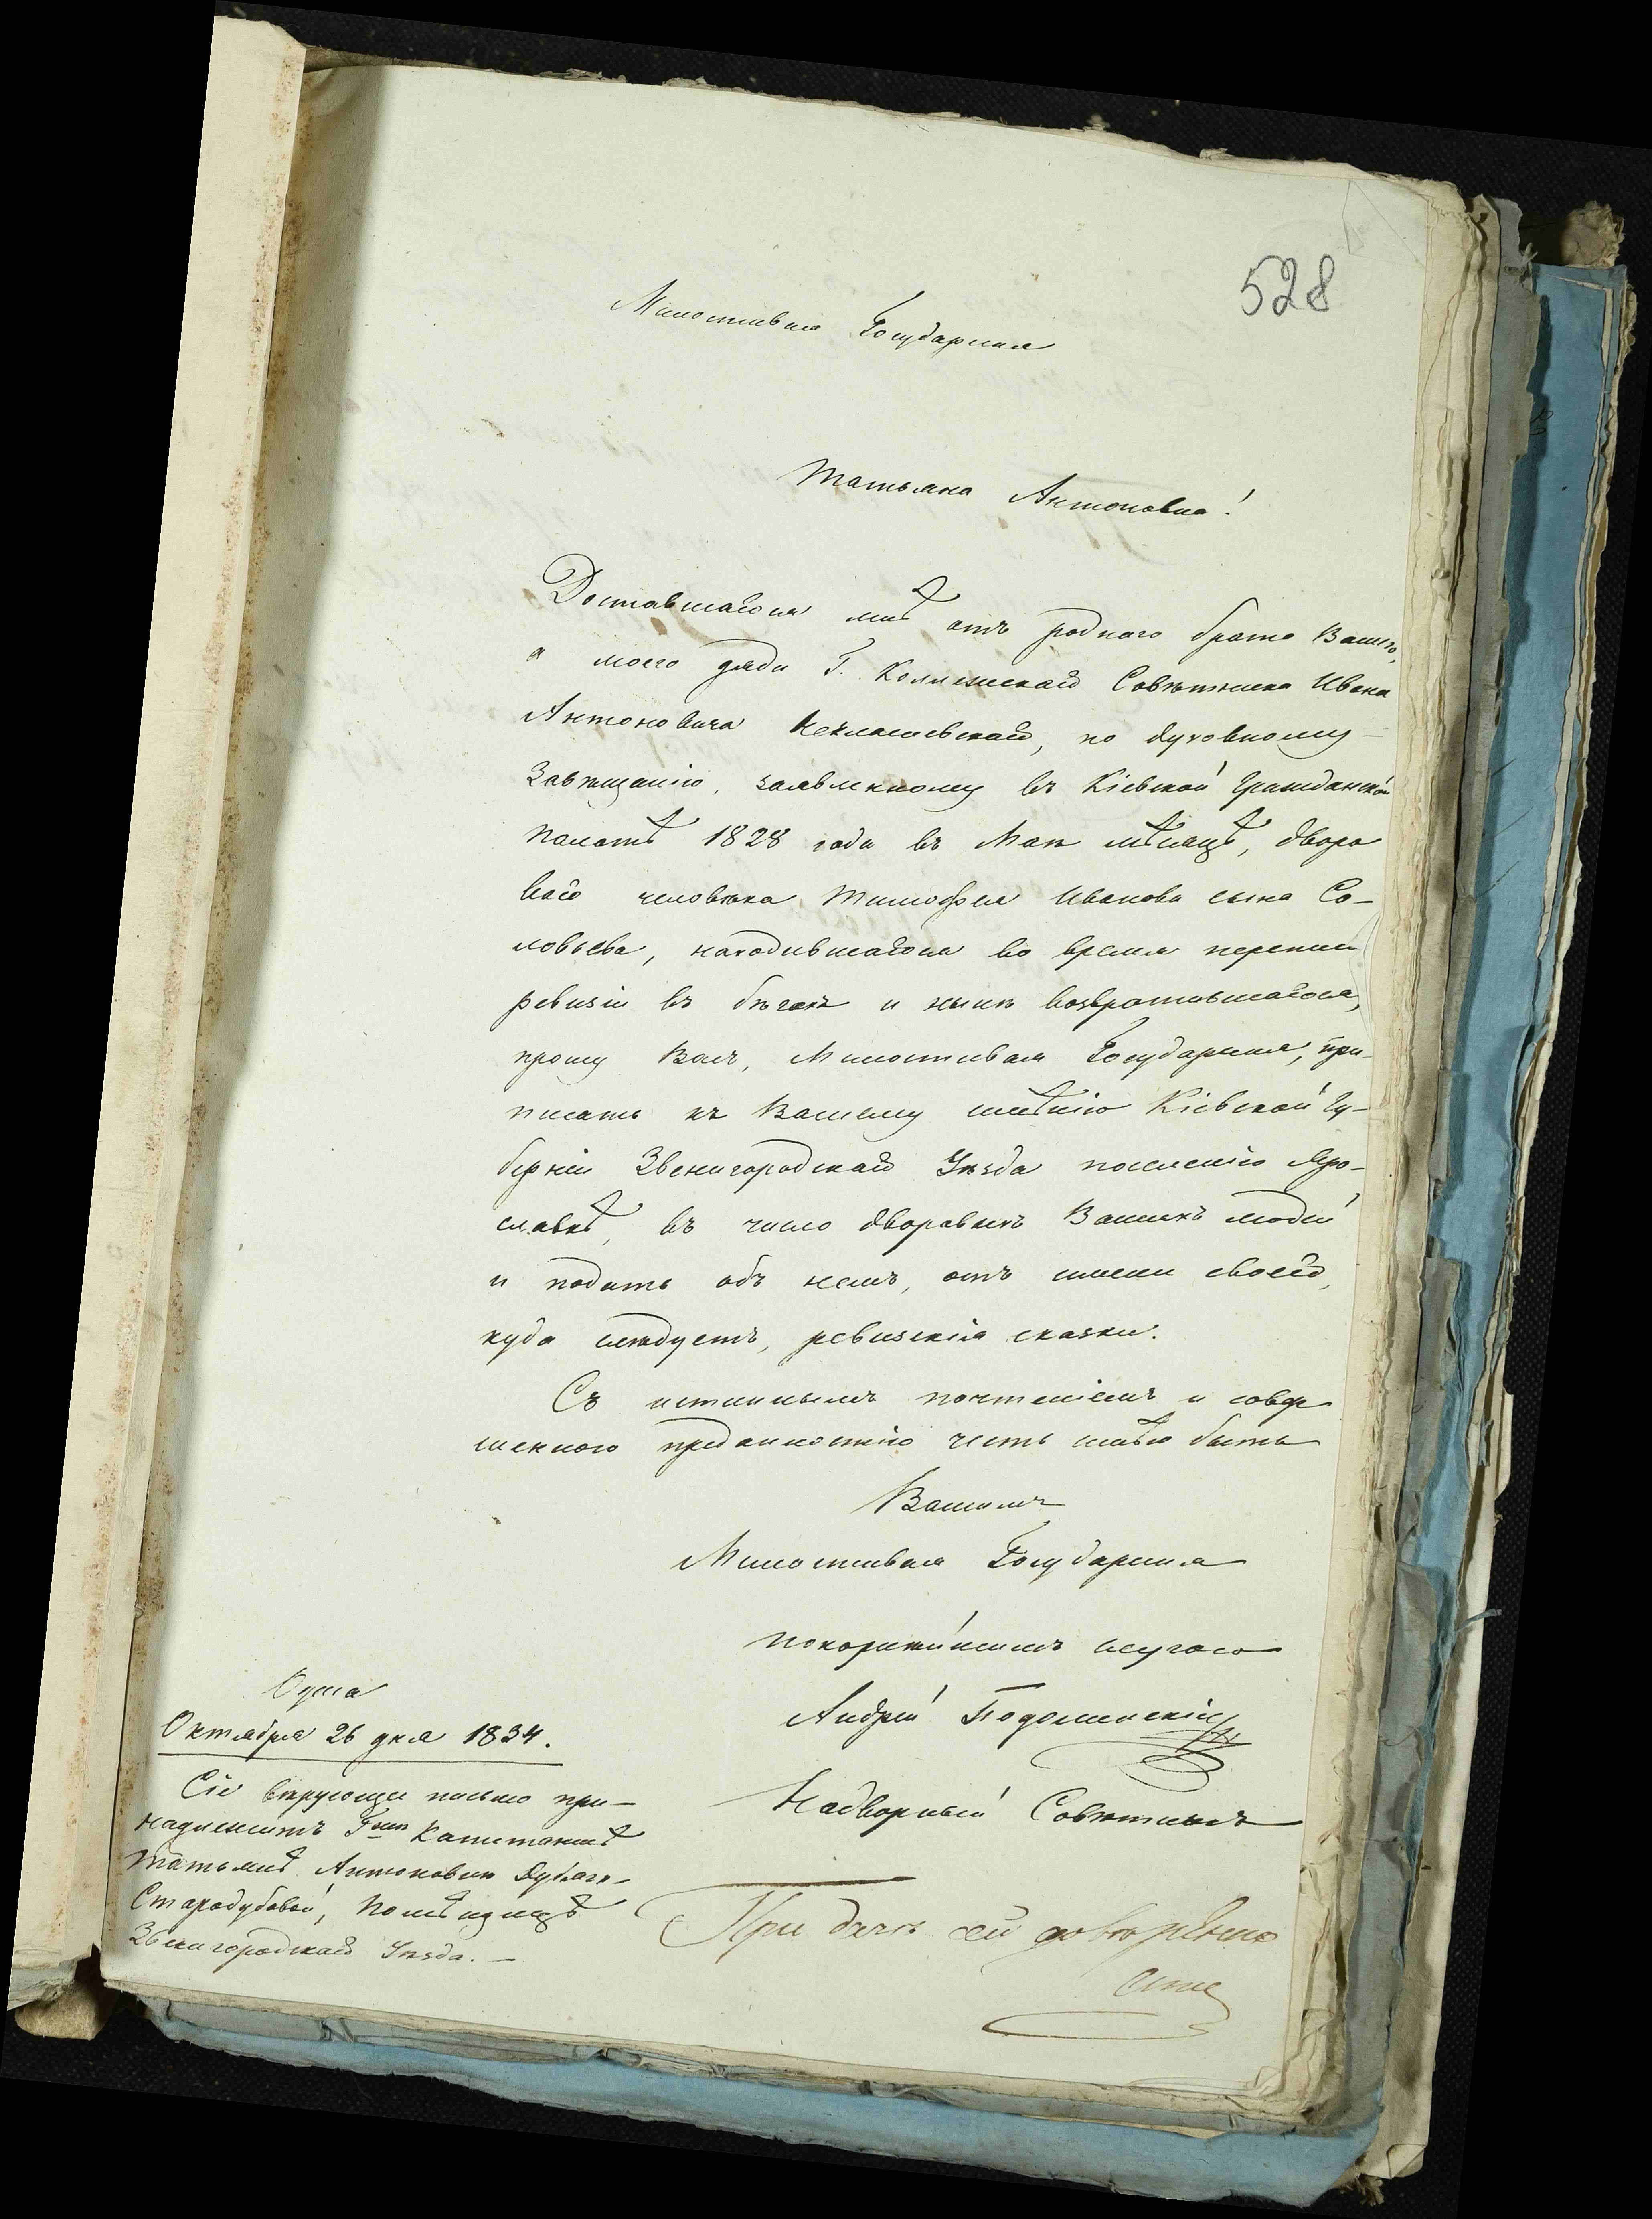 528
Милостивая Государыня
Татьяна Антоновна!
Доставшагося мнѣ отъ роднаго брата Вашего,
а моего дяди Г. Коллежскаго Совѣтника Ивана
Антоновича по духовному
Завѣщанію, заявленному въ Кіевской Гражданской
Палатѣ 1828 года въ Маѣ мѣсяцѣ, дворо
ваго человѣка Тимофея Иванова сына Со-
ловьева, находившагося во время
ревизіи въ бѣгахъ и нынѣ возвратившагося,
прошу Васъ, Милостивая Государыня, при-
писать къ Вашему имѣнію Кіевской Гу-
берніи Звенигородскаго Уѣзда поселенію Яро-
славкѣ, въ число дворовыхъ Вашихъ людей
и подать объ немъ, отъ имени своего,
куда слѣдуетъ, ревизскія сказки.
Съ истиннымъ почтеніемъ и совер
шенною преданностію честь имѣю быть
Вашимъ
Милостивая Государыня
покорнѣйшимъ слугою
Андрей Подолинскій
Надворный Совѣтникъ
Октября 26 дня 1834.
Сіе вѣрующее письмо при-
надлежитъ Г-жѣ Капитаншѣ
Татьянѣ Антоновнѣ
Стародубовой, Помѣщицѣ
Звенигородскаго Уѣзда. —
При